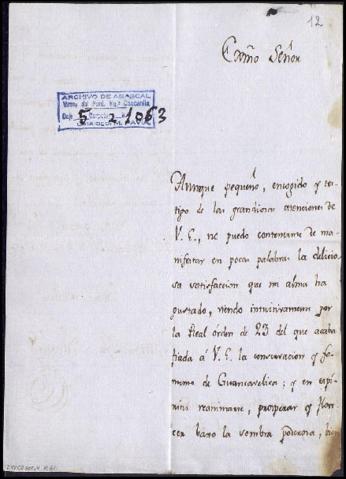 12
Exmõ Señor
ARCHIVO DE ABASCAL
5 2 1063
Aunque pequeño, encogido y
de las grandiosas atenciones de
V. E., no puedo contenerme de ma-
nifestar en pocas palabras la delicio-
sa satisfaccion que mi alma ha
gustado, viendo intuitivamente por
la Real órden de 23 del que acaba
fiada á V. E. la conservacion y fo-
mento de Guancavelica; y en
reanimarse, prosperar y flore-
cer baxo la sombra poderosa,